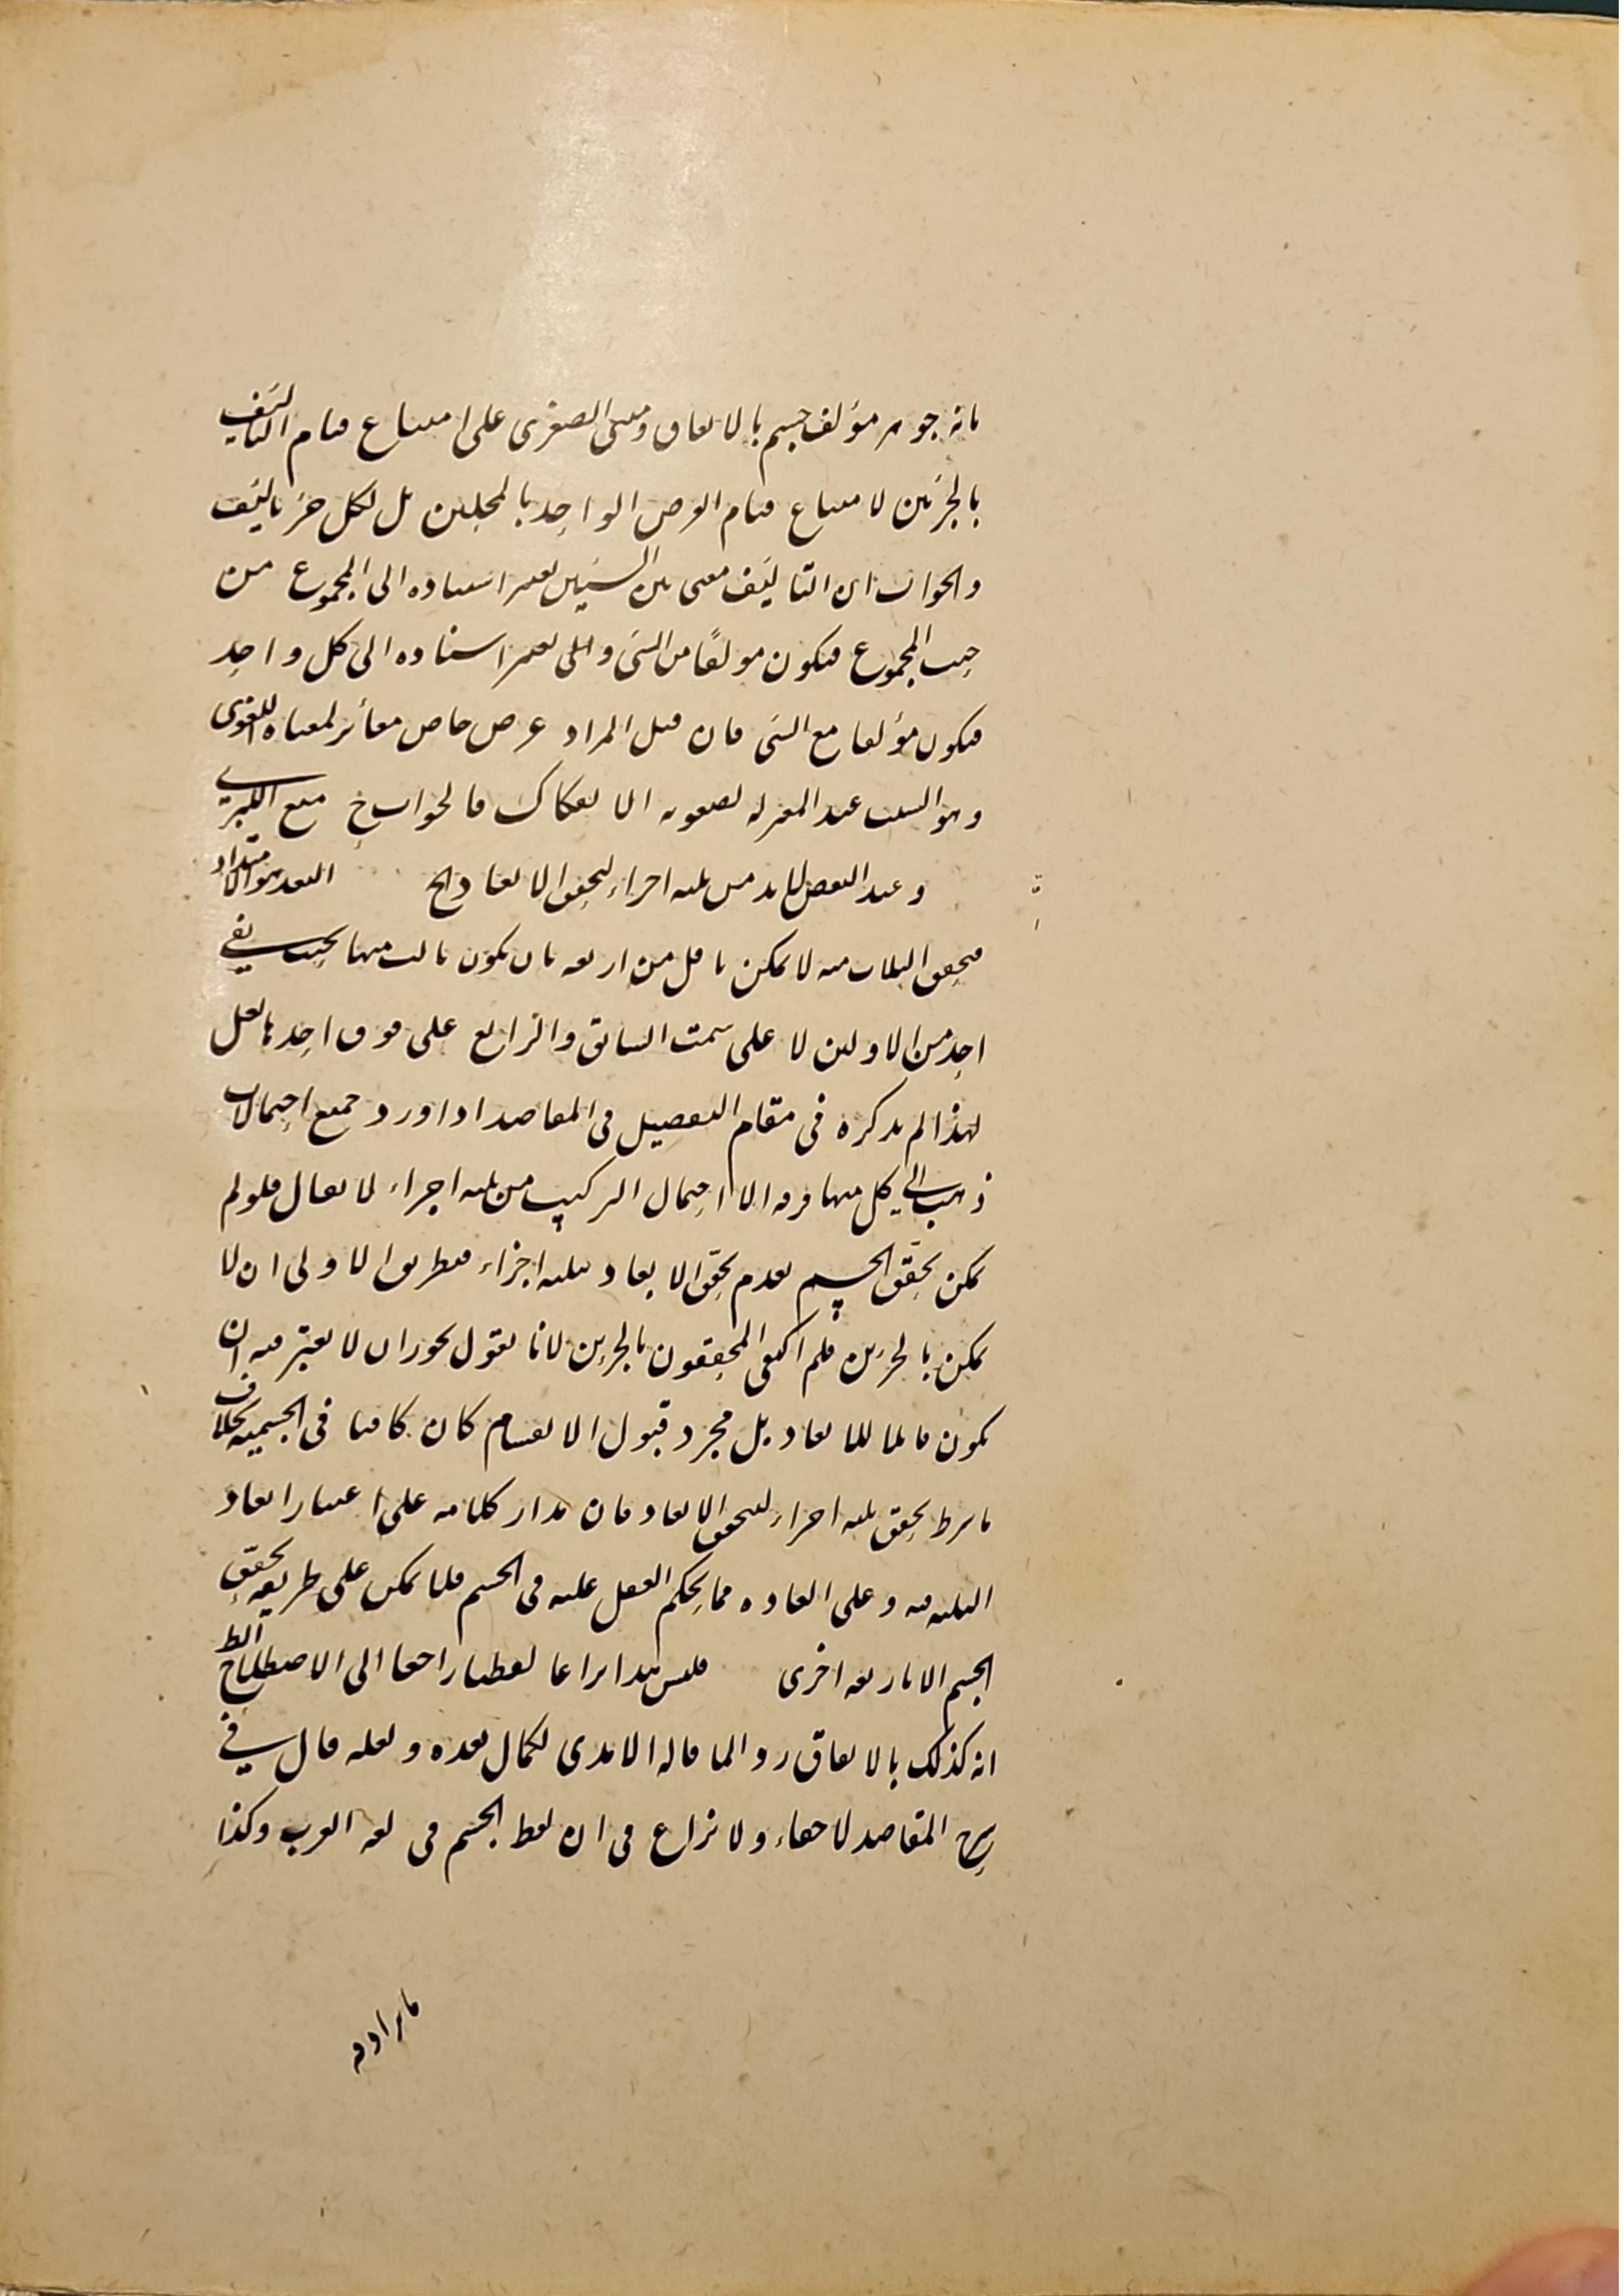 بانه جوهر مؤلف جسم بالاتفاق ومبنى الصغرى على امتناع قيام التأليف
بالجزئين لامتناع قيام العرض الواحد بالمحلين بل لكل جزء تأليف
والجواب ان التأليف معنى بين الشيئين يعتبر استناده الى المجموع من
حيث المجموع فيكون مولفا من الشئ والى يعتبر استناده الى كل واحد
فيكون مؤلفا مع الشئ فان قيل المراد عرض خاص مغائر لمعناه اللغوى
وهو السبب عند المعتزلة لصعوبة الانفكاك فالجواب ح منع الكبرى
وعند البعض لا بد من ثلثة اجزاء لتحقق الابعاد الخ البعد هو الامتداد
فتحقق الثلاث منه لا يمكن باقل من اربعة بان يكون ثالث منها بحيث
احد من الاولين لا على سمت السابق والرابع على فوق احدها لعل
لهذا لم يذكره فى مقام التفصيل فى المقاصد اذا ورد جميع احتمالات
ذهب الى كل منها فرقة الا احتمال التركيب من ثلثة اجزاء لا يقال فلو لم
يمكن تحقق الجسم لعدم تحقق الابعاد بثلثة اجزاء فبطريق الاولى ان لا
يمكن بالجزئين فلم اكتفى المحققون بالجزئين لانا نقول يجوز ان لا يعتبر فيه ان
يكون قابلا للابعاد بل مجرد قبول الانقسام كان كافيا فى الجسمية بخلاف
ما شرط تحقق ثلثة اجزاء لتحقق الابعاد فان مدار كلامه على اعتبار ابعاد
الثلثة فيه وعلى العادة مما يحكم العقل عليه فى الجسم فلا يمكن على طريقه تحقق
الجسم الا باربعة اخرى فليس هذا نزاعا لفظيا راجعا الى الاصطلاح الظ
انه كذلك بالاتفاق رد والما قاله الامدى لكمال بعده ولعله قال فى
شرح المقاصد لا خفاء ولا نزاع فى ان لفظ الجسم فى لغة العرب وكذا